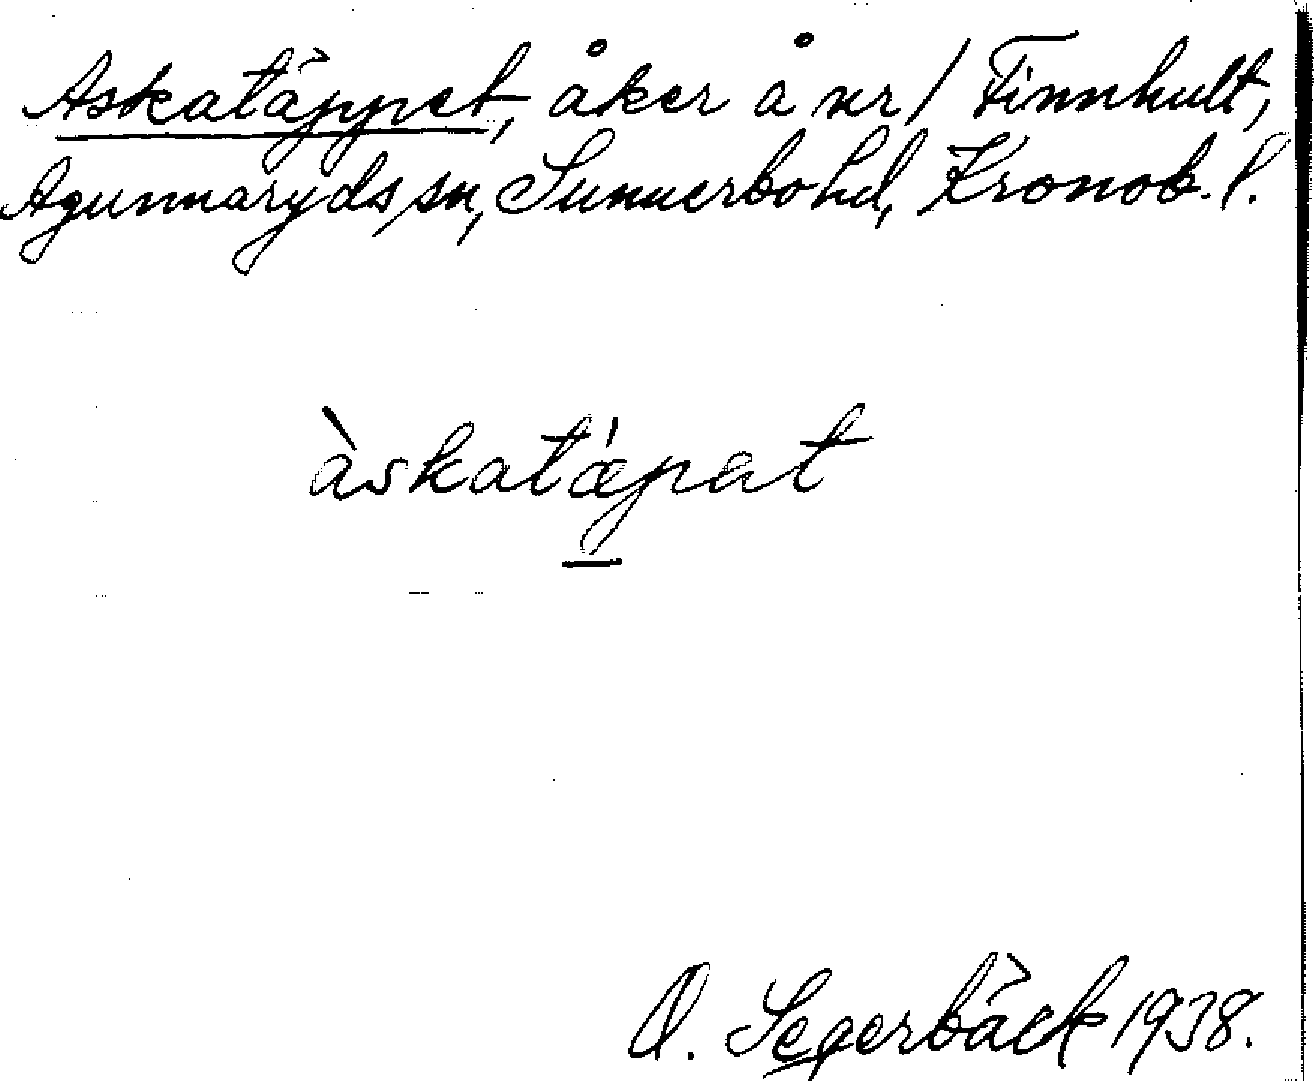 Askatäppet, åker å nr 1 Finnhult,
Agunnaryds sn, Sunnerbo hd, Kronob. l.
àskatǽpat
O. Segerbäck 1938.